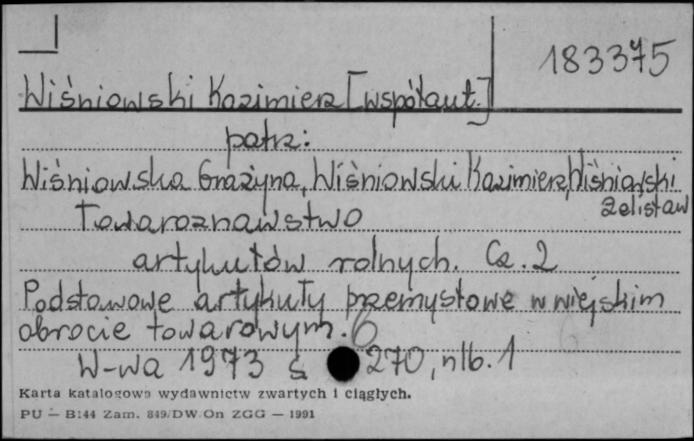 183375
Wiśniowski Kazimierz [współaut.]
patrz:
Wiśniowska Grażyna, Wiśniowski Kazimierz, Wiśniowski
Zelisław
Towaroznawstwo
artykułów rolnych. Cz. 2
Podstawowe artykuły przemysłowe w wiejskim
obrocie towarowym.
W-wa 1973 s 270, nlb. 1
Karta katalogowa wydawnictw zwartych i ciągłych.
PU — B144 Zam. 849/DW On ZGG — 1991